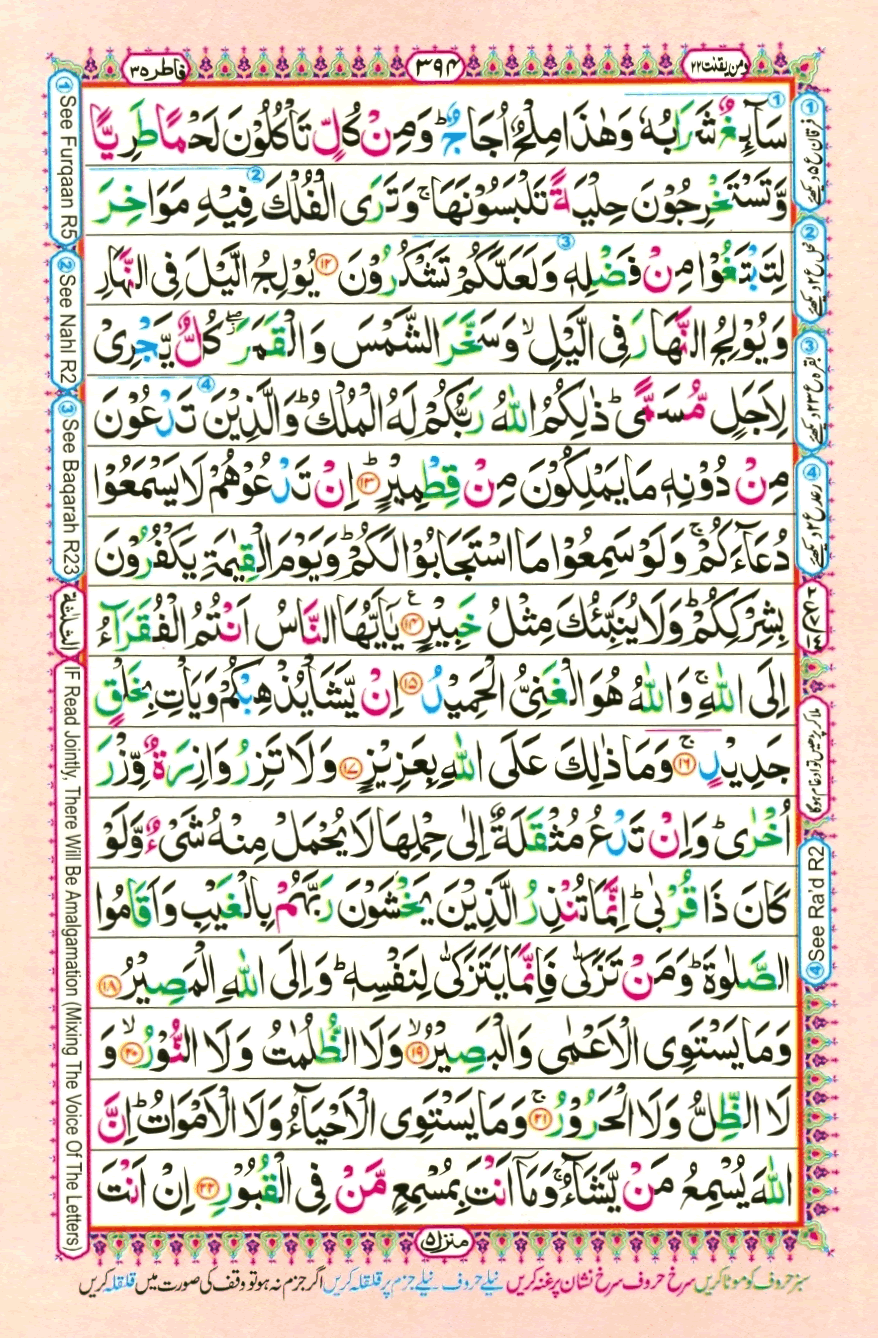 ومن یقنت ۲۲
۳۹۴
فاطر ۳۵
سَآىِٕغٌ شَرَابُهٗ وَهٰذَا مِلْحٌ اُجَاجٌ ؕ وَمِنْ كُلٍّ تَاْكُلُوْنَ لَحْمًا طَرِیًّا
وَّتَسْتَخْرِجُوْنَ حِلْیَةً تَلْبَسُوْنَهَا ۚ وَتَرَی الْفُلْكَ فِیْهِ مَوَاخِرَ
لِتَبْتَغُوْا مِنْ فَضْلِهٖ وَلَعَلَّكُمْ تَشْكُرُوْنَ ۝۱۲ یُوْلِجُ الَّیْلَ فِی النَّهَارِ
وَیُوْلِجُ النَّهَارَ فِی الَّیْلِ ۙ وَسَخَّرَ الشَّمْسَ وَالْقَمَرَ ۖؗ كُلٌّ یَّجْرِیْ
لِاَجَلٍ مُّسَمًّی ؕ ذٰلِكُمُ اللّٰهُ رَبُّكُمْ لَهُ الْمُلْكُ ؕ وَالَّذِیْنَ تَدْعُوْنَ
مِنْ دُوْنِهٖ مَا یَمْلِكُوْنَ مِنْ قِطْمِیْرٍ ؕ۝۱۳ اِنْ تَدْعُوْهُمْ لَا یَسْمَعُوْا
دُعَآءَكُمْ ۚ وَلَوْ سَمِعُوْا مَا اسْتَجَابُوْا لَكُمْ ؕ وَیَوْمَ الْقِیٰمَةِ یَكْفُرُوْنَ
بِشِرْكِكُمْ ؕ وَلَا یُنَبِّئُكَ مِثْلُ خَبِیْرٍ ۝۱۴ ع یٰۤاَیُّهَا النَّاسُ اَنْتُمُ الْفُقَرَآءُ
اِلَی اللّٰهِ ۚ وَاللّٰهُ هُوَ الْغَنِیُّ الْحَمِیْدُ ۝۱۵ اِنْ یَّشَاْ یُذْهِبْكُمْ وَیَاْتِ بِخَلْقٍ
جَدِیْدٍ ۚ۝۱۶ وَمَا ذٰلِكَ عَلَی اللّٰهِ بِعَزِیْزٍ ۝۱۷ وَلَا تَزِرُ وَازِرَةٌ وِّزْرَ
اُخْرٰی ؕ وَاِنْ تَدْعُ مُثْقَلَةٌ اِلٰی حِمْلِهَا لَا یُحْمَلْ مِنْهُ شَیْءٌ وَّلَوْ
كَانَ ذَا قُرْبٰی ؕ اِنَّمَا تُنْذِرُ الَّذِیْنَ یَخْشَوْنَ رَبَّهُمْ بِالْغَیْبِ وَاَقَامُوا
الصَّلٰوةَ ؕ وَمَنْ تَزَكّٰی فَاِنَّمَا یَتَزَكّٰی لِنَفْسِهٖ ؕ وَاِلَی اللّٰهِ الْمَصِیْرُ ۝۱۸
وَمَا یَسْتَوِی الْاَعْمٰی وَالْبَصِیْرُ ۙ۝۱۹ وَلَا الظُّلُمٰتُ وَلَا النُّوْرُ ۙ۝۲۰ وَ
لَا الظِّلُّ وَلَا الْحَرُوْرُ ۚ۝۲۱ وَمَا یَسْتَوِی الْاَحْیَآءُ وَلَا الْاَمْوَاتُ ؕ اِنَّ
اللّٰهَ یُسْمِعُ مَنْ یَّشَآءُ ۚ وَمَاۤ اَنْتَ بِمُسْمِعٍ مَّنْ فِی الْقُبُوْرِ ۝۲۲ اِنْ اَنْتَ
منزل ۵
سبز حروف کو موٹا کریں سرخ حروف سرخ نشان پر غنہ کریں نیلے حروف نیلے جزم پر قلقلہ کریں اگر جزم نہ ہو تو وقف کی صورت میں قلقلہ کریں
① فرقان ع ۵ دیکھئے
② نحل ع ۲ دیکھئے
③ بقرہ ع ۲۳ دیکھئے
④ رعد ع ۲ دیکھئے
ملا کر پڑھیں تو ادغام ہوگا
④ See Ra'd R2
① See Furqaan R5
② See Nahl R2
③ See Baqarah R23
الثلٰثة
IF Read Jointly, There Will Be Amalgamation (Mixing The Voice Of The Letters)